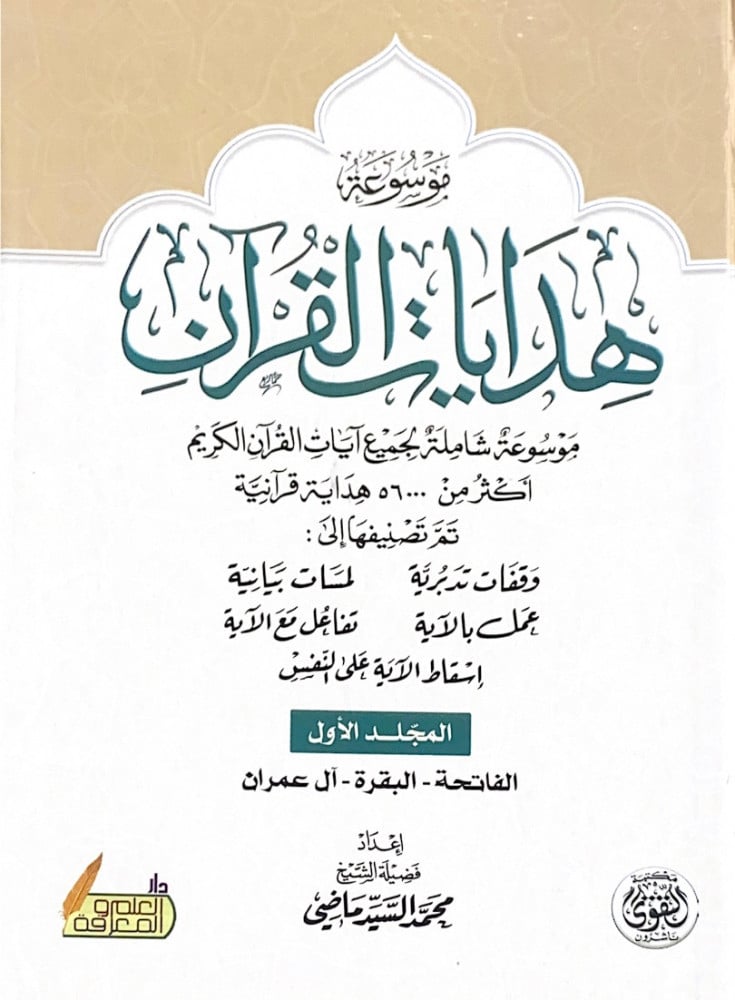 مَوْسُوعَةُ
هِدَايَاتِ الْقُرْآنِ
مَوْسُوعَةٌ شَامِلَةٌ لِجَمِيعِ آيَاتِ القُرآنِ الكَرِيمِ
أَكْثَرُ مِنْ ٥٦٠٠٠ هِدَايَة قُرآنِيَّة
تَمَّ تَصْنِيفُهَا إِلَىٰ :
وَقفَات تدبُريَّة لمسَات بَيَانِيَة
عمَل بالآية تفاعُل مَعَ الآية
إسقاط الآيَة عَلىٰ النّفسِ
المجّلد الأول
الفاتحة - البقرة - آل عمران
إعْدَاد
فَضِيلَة الشَّيْخ
محمَّد السَّيِّد مَاضِي
دار
العلم و
المعرفة
مكتبة
التقوى
ناشرون